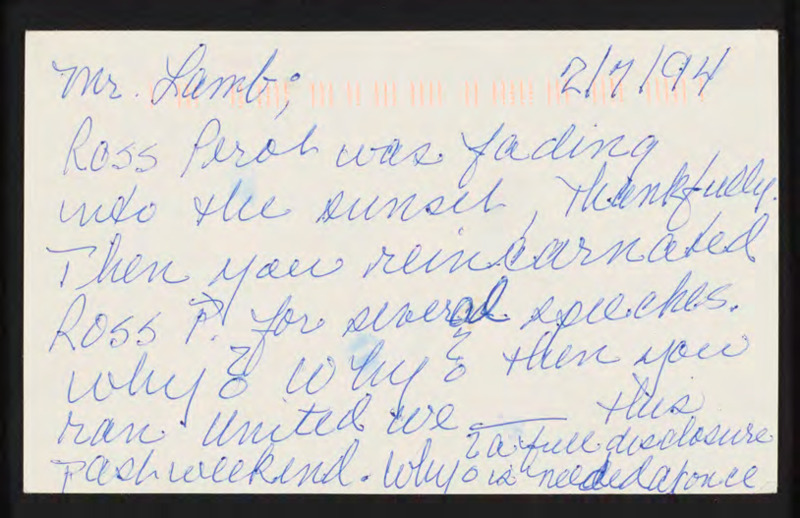 Mr. Lamb; 2/7/94
Ross Perot was fading
into the sunset, thankfully.
Then you reincarnated
Ross P. for several speeches.
Why? Why? then you
ran United We ___ this
past weekend. Why?
a full disclosure
is needed at once